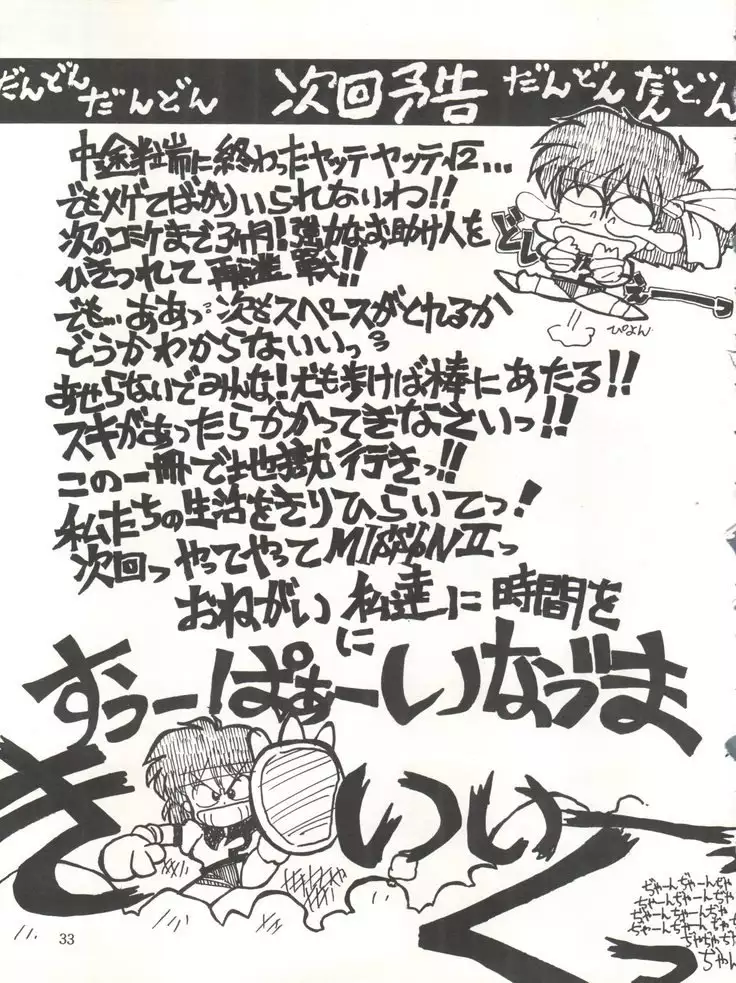 だんどん だんどん 次回予告 だんどん だんどん
中途半端に終わったヤッテヤッティ2…
でもメゲてばかりいられないわ!!
次のコミケまで3ヶ月!強力なお助け人を
ひきつれて再進撃!!
でも…ああっ次もスペースがとれるか
どうかわからないいっ
あせらないでみんな!犬も歩けば棒にあたる!!
スキがあったらかかってきなさいっ!!
この一冊で地獄行きっ!!
私たちの生活をきりひらいてっ!
次回っ やってやってMISSION IIっ
おねがい 私達に時間を
に
すぅーぱぁーいなづま
きいぃっくっ
どん
ぴょん
ぢゃーんぢゃーんぢゃ
ぢゃーんぢゃーんぢゃ
ぢゃーんぢゃーん
ぢゃぢゃぢゃ
ぢゃん
33